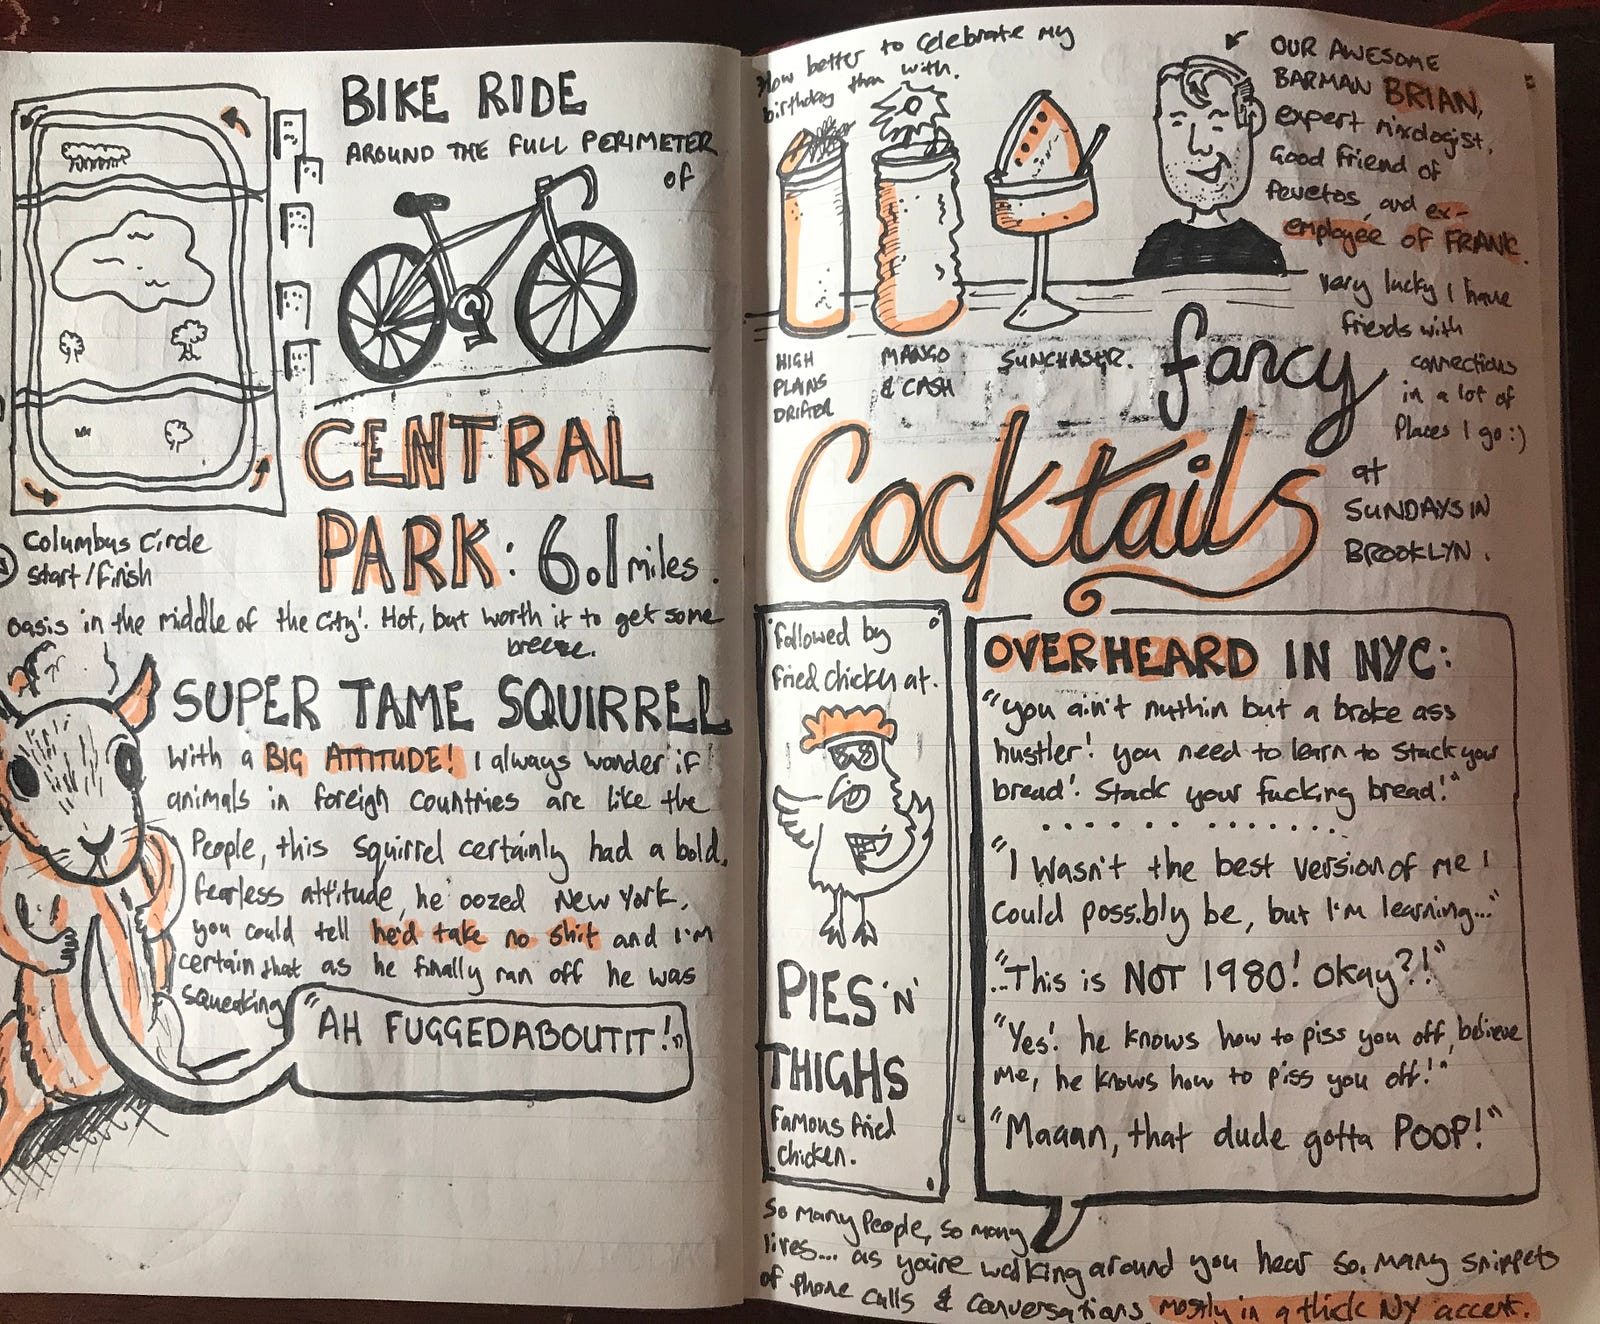 BIKE RIDE
AROUND THE FULL PERIMETER
of
CENTRAL
PARK: 6.1 miles.
Columbus Circle
Start/Finish
oasis in the middle of the city! Hot, but worth it to get some
breeze.
SUPER TAME SQUIRREL
with a BIG ATTITUDE! I always wonder if
animals in foreign countries are like the
People, this squirrel certainly had a bold,
fearless attitude, he oozed New York,
you could tell he'd take no shit and I'm
certain that as he finally ran off he was
squeaking
"AH FUGGEDABOUTIT!"
How better to celebrate my
birthday than with.
OUR AWESOME
BARMAN BRIAN,
expert mixologist,
Good friend of
fevetos, and ex-
employee of FRANK.
very lucky I have
friends with
connections
in a lot of
Places I go :)
HIGH
PLAINS
DRIFTER
MANGO
& CASH
SUNCHASER.
fancy
Cocktails
at
SUNDAYS IN
BROOKLYN.
followed by
fried chicken at.
PIES 'N'
THIGHS
Famous fried
chicken.
OVERHEARD IN NYC:
"you ain't nuthin but a broke ass
hustler! you need to learn to stack your
bread! Stack your fucking bread!"
"I wasn't the best version of me I
could possibly be, but I'm learning..."
"..This is NOT 1980! Okay?!"
"Yes! he knows how to piss you off, believe
me, he knows how to piss you off!"
"Maaan, that dude gotta POOP!"
So many People, so many
lives.... as you're walking around you hear so many snippets
of phone calls & conversations, mostly in a thick NY accent.